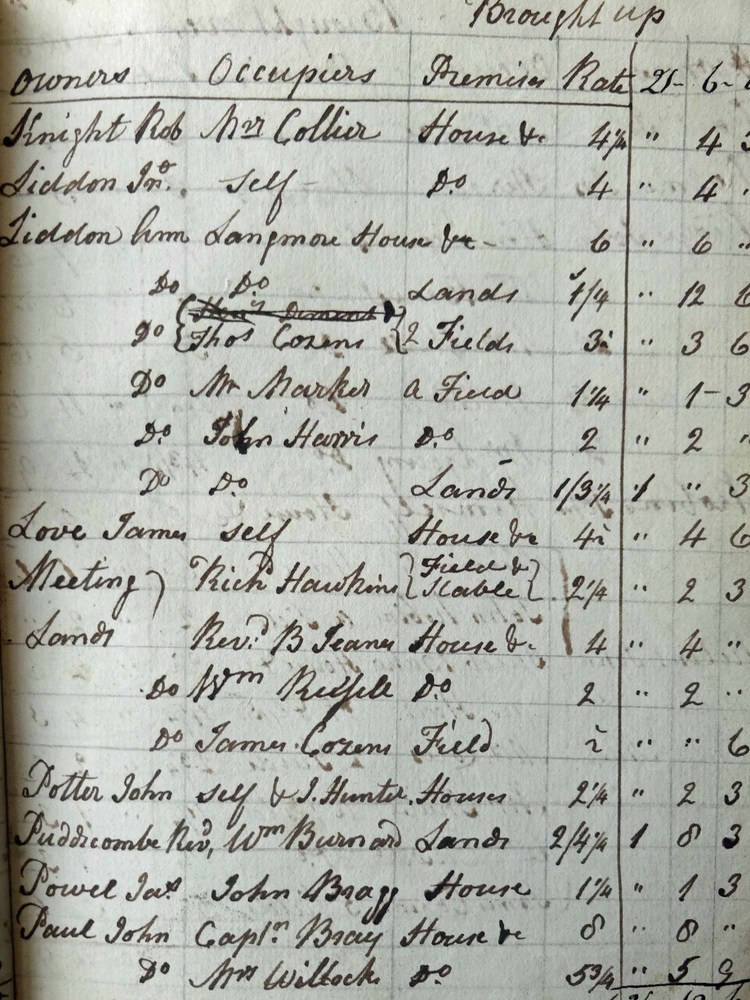 Brought up
Owners Occupiers Premises Rate 21- 6-
Knight Rob Mrs Collier House &c 4¼ " 4 3
Liddon Jno. self - Do 4 " 4
Liddon Ann Langmore House &c - 6 " 6 "
Do Do Lands 1/4 " 12 6
Do { Thos Cozens } 2 Fields 3½ " 3 6
Do Mr Marker a Field 1¼ " 1 - 3
Do. John Harris Do. 2 " 2 "
Do Do. Lands 1/3¼ 1 " 3
Love James self House &c 4½ " 4 6
Meeting ) Richd Hawkins { Field & Stable } 2¼ " 2 3
Lands Revd. B Jeanes House &c. 4 " 4 "
Do Wm Do 2 " 2 "
Do James Cozens Field ½ " " 6
Potter John self & J. Hunter. Houses 2¼ " 2 3
Puddicombe Revd, Wm Burnard Lands 2/4¼ 1 8 3
Powel Jas John Bragg House 1¼ " 1 3
Paul John Captn. Bray House &c 8 " 8 "
Do Mrs Willock Do. 5¾ " 5 9